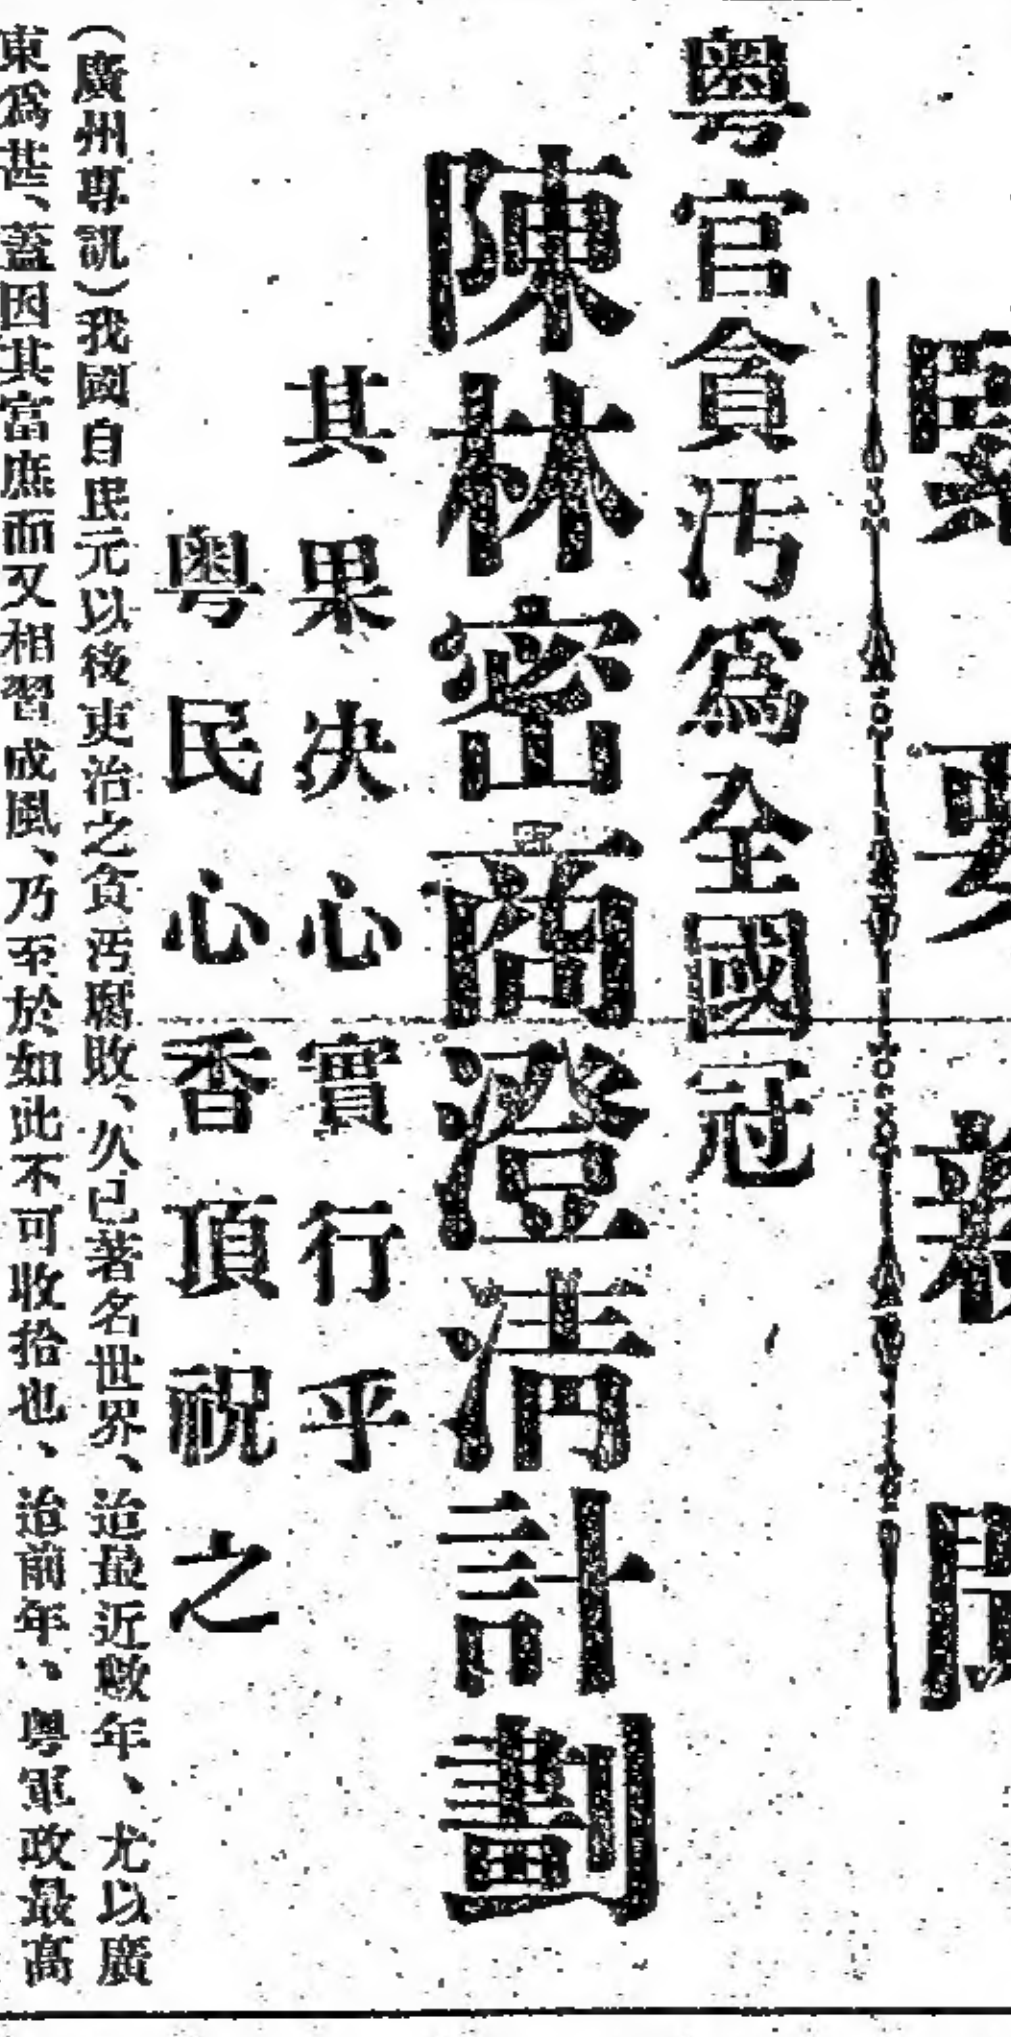 緊要新聞
粤官貪汚爲全國冠
陳林密商澄清計劃
其果決心實行乎
粤民心香頂祝之
(廣州專訊)我國自民元以後吏治之貪汚腐敗、久已著名世界、迨最近數年、尤以廣
東爲甚、蓋因其富庶而又相習成風、乃至於如此不可收拾也、迨前年、粤軍政最高